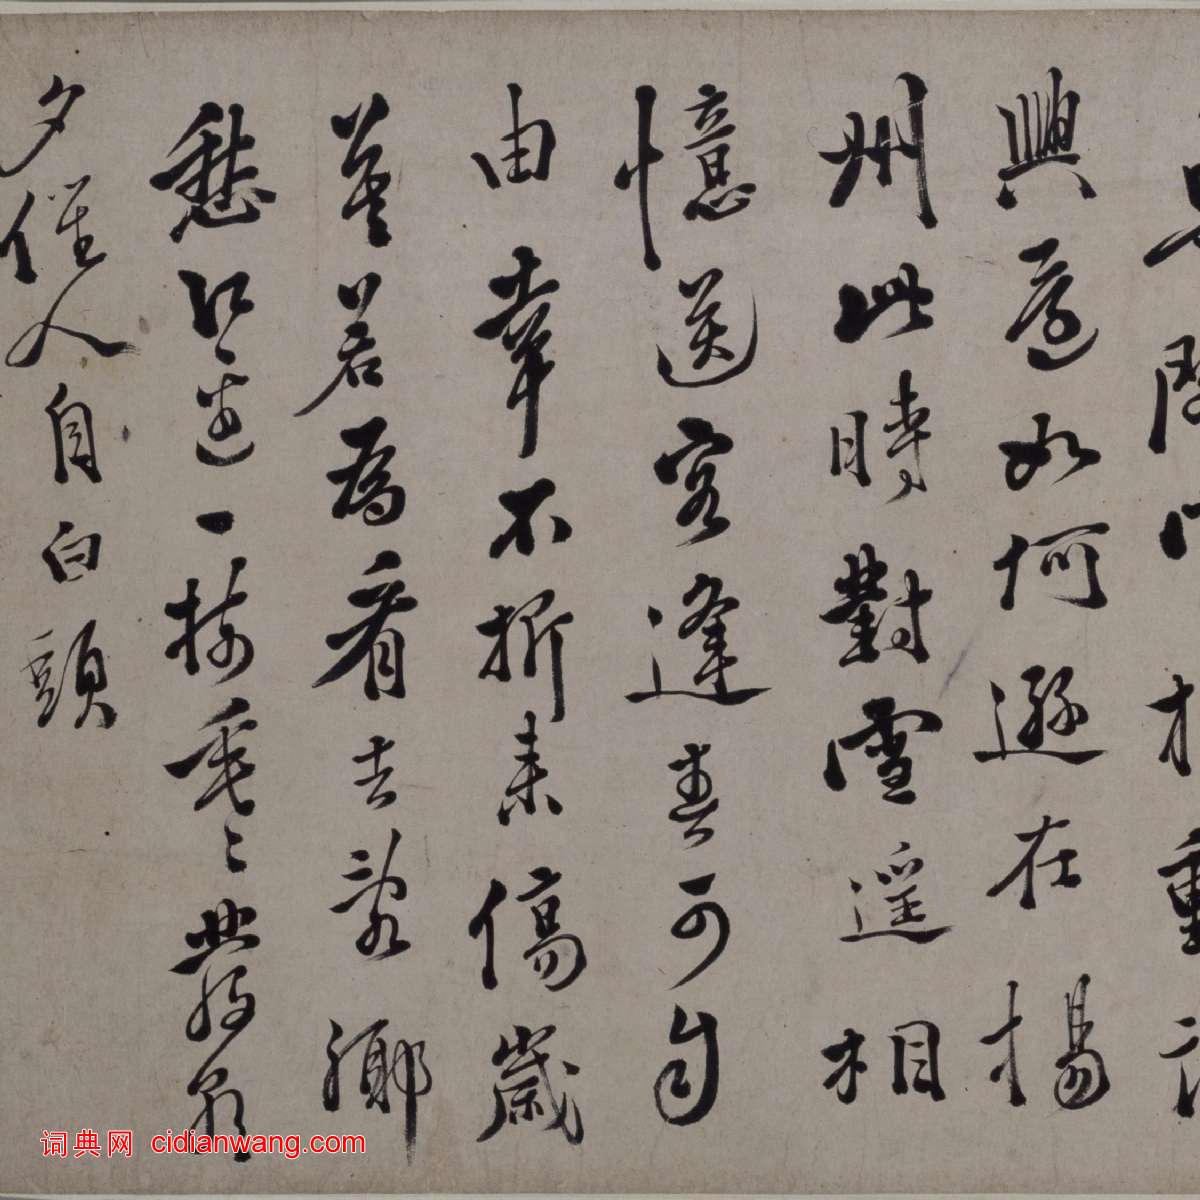 興還如何遜在揚
州此時對雪遙相
憶送客逢春可自
由幸不折来傷歲
暮若為看去亂鄉
愁江邊一樹垂〻發朝
夕催人自白頭
词典网 cidianwang.com